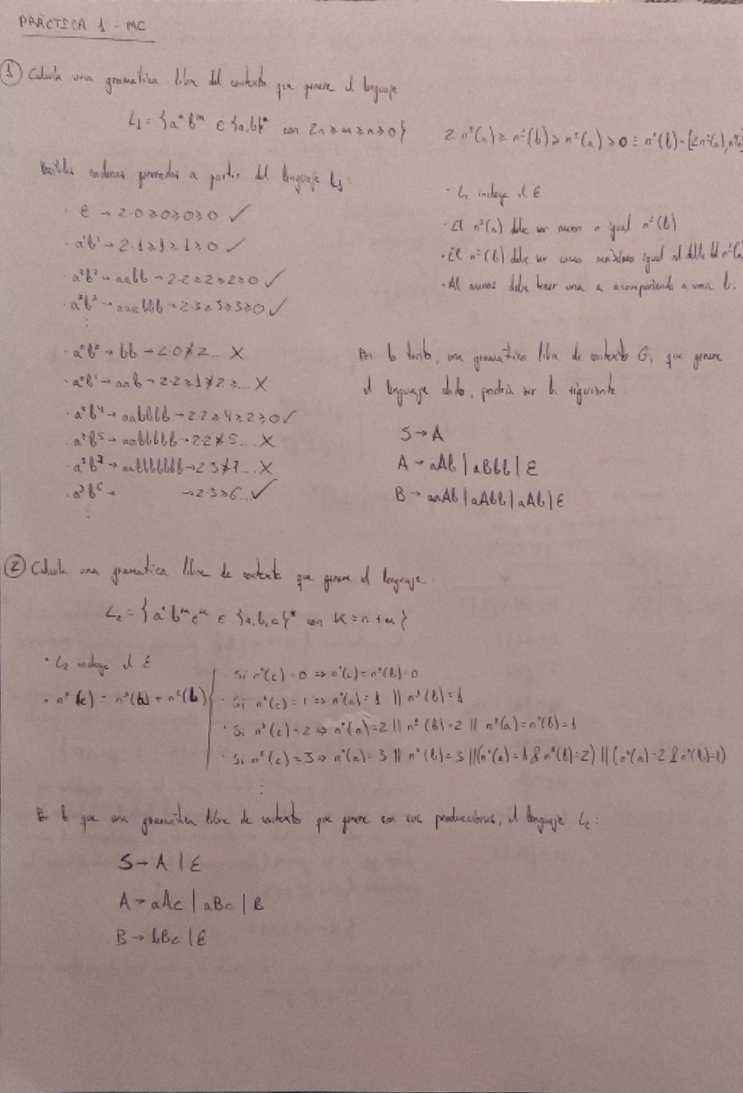 PRÁCTICA 1 - MC
① Calcula una gramática libre del contexto que genere el lenguaje
L₁ = {aⁿbᵐ ∈ {a,b}* con 2n ≥ m ≥ n ≥ 0}
2 nº(a) ≥ nº(b) ≥ nº(a) ≥ 0 ≡ nº(b) = [2nº(a), nº(a)
Posibles cadenas generadas a partir del lenguaje L₁:
· ε → 2·0 ≥ 0 ≥ 0 ≥ 0 ✓
· a¹b¹ → 2·1 ≥ 1 ≥ 1 ≥ 0 ✓
· a²b² → aabb → 2·2 ≥ 2 ≥ 2 ≥ 0 ✓
· a³b³ → aaabbb → 2·3 ≥ 3 ≥ 3 ≥ 0 ✓
⋮
· a⁰b² → bb → 2·0 ≱ 2... X
· a²b¹ → aab → 2·2 ≥ 1 ≱ 2 ≥ ... X
· a²b⁴ → aabbbb → 2·2 ≥ 4 ≥ 2 ≥ 0 ✓
· a²b⁵ → aabbbbb → 2·2 ≱ 5... X
· a³b⁷ → → 2·3 ≱ 7... X
· a³b⁶ → → 2·3 ≥ 6... ✓
⋮
· L₁ incluye el ε
· El nº(a) debe ser menor o igual nº(b)
· El nº(b) debe ser como máximo igual al doble del nº(a)
· Al menos debe tener una a acompañando a una b.
Por lo tanto, una gramática libre de contexto G, que genere
el lenguaje dado, podría ser la siguiente
S → A
A → aAb | aBbb | ε
B → aaAb | aAbb | aAb | ε
② Calcula una gramática libre de contexto que genere el lenguaje
L₂ = {aⁿbᵐcᵏ ∈ {a,b,c}* con K = n + m}
· L₂ incluye el ε
· nº(c) = nº(a) + nº(b)
· Si nº(c) = 0 ⇒ nº(a) = nº(b) = 0
· Si nº(c) = 1 ⇒ nº(a) = 1 || nº(b) = 1
· Si nº(c) = 2 ⇒ nº(a) = 2 || nº(b) = 2 || nº(a) = nº(b) = 1
· Si nº(c) = 3 ⇒ nº(a) = 3 || nº(b) = 3 || (nº(a) = 1 & nº(b) = 2) || (nº(a) = 2 & nº(b) = 1)
⋮
Por lo que una gramática libre de contexto que genere con sus producciones, el lenguaje L₂:
S → A | ε
A → aAc | aBc | B
B → bBc | ε